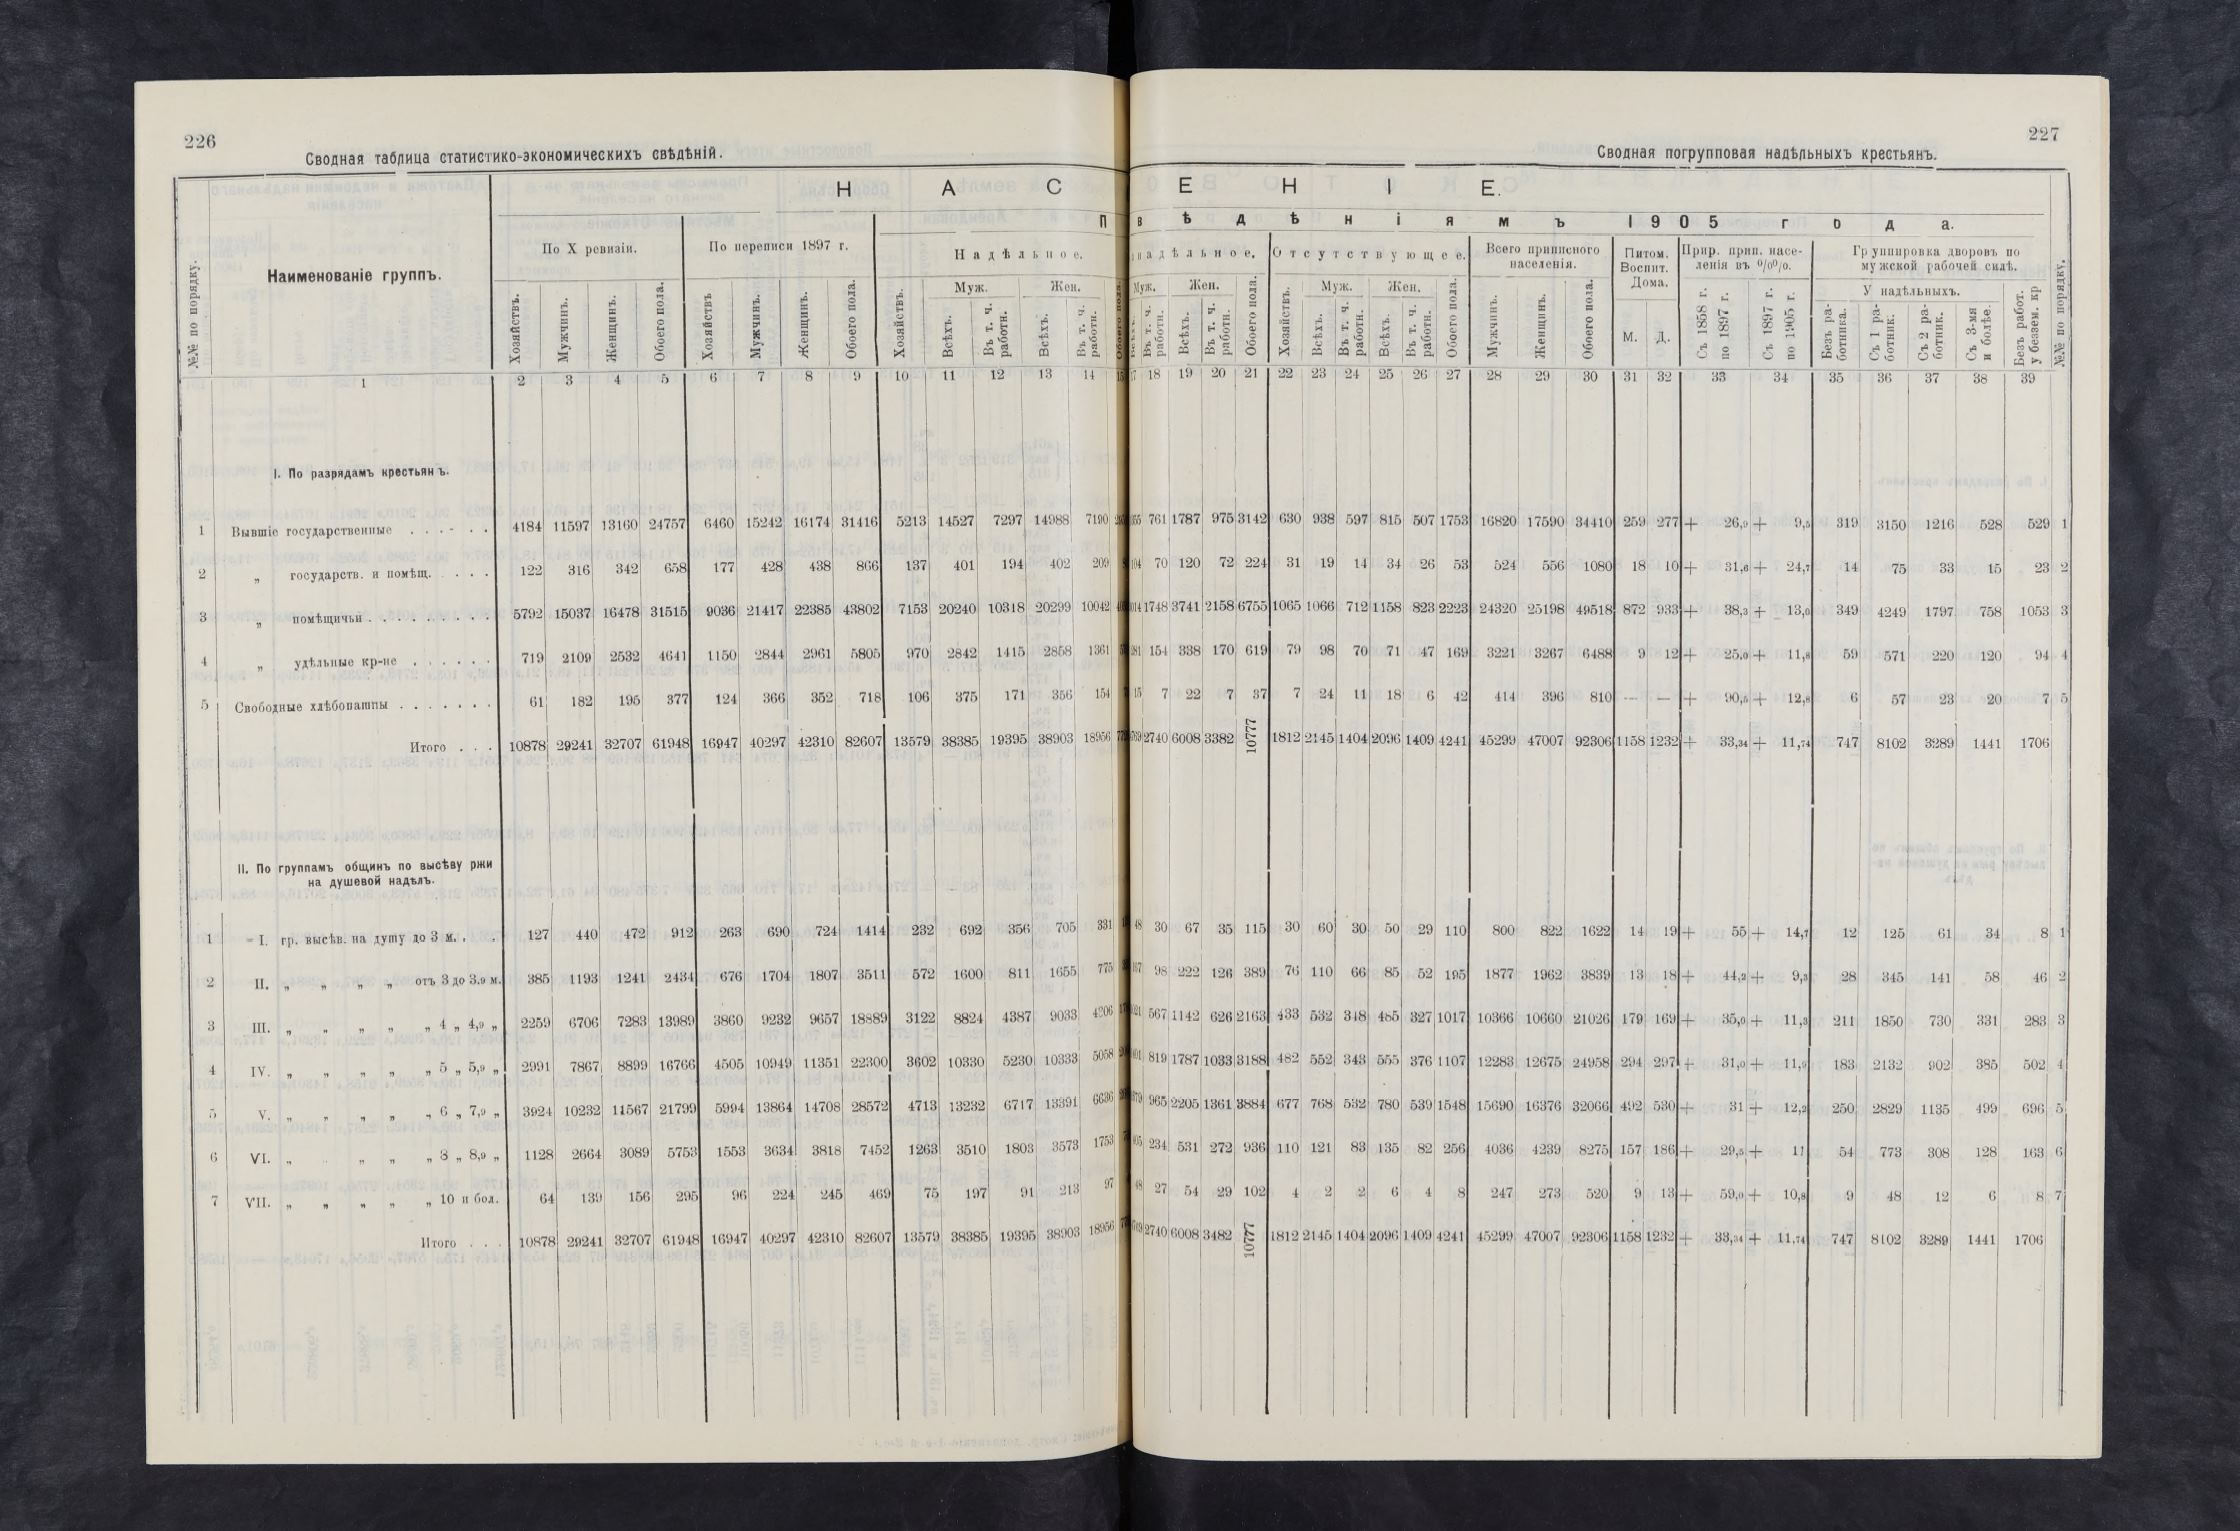 226
Сводная таблица статистико-экономическихъ свѣдѣній.
№№ по порядку.
Наименованіе группъ.
Н А С
П
По X ревизіи.
По переписи 1897 г.
Надѣльное.
Муж. Жен.
Хозяйствъ. Мужчинъ. Женщинъ. Обоего пола. Хозяйствъ Мужчинъ. Женщинъ. Обоего пола. Хозяйствъ. Всѣхъ. Въ т. ч. работн. Всѣхъ. Въ т. ч. работн. Обоего пола.
1 2 3 4 5 6 7 8 9 10 11 12 13 14 15
I. По разрядамъ крестьянъ.
1 Бывшіе государственные . . . - . . 4184 11597 13160 24757 6460 15242 16174 31416 5213 14527 7297 14988 7190
2 „ государств. и помѣщ. . . . . 122 316 342 658 177 428 438 866 137 401 194 402 209
3 „ помѣщичьи . . . . . . . . . 5792 15037 16478 31515 9036 21417 22385 43802 7153 20240 10318 20299 10042
4 „ удѣльные кр-не . . . . . . 719 2109 2532 4641 1150 2844 2961 5805 970 2842 1415 2858 1361
5 Свободные хлѣбопашцы . . . . . . . 61 182 195 377 124 366 352 718 106 375 171 356 154
Итого . . . 10878 29241 32707 61948 16947 40297 42310 82607 13579 38385 19395 38903 18956
II. По группамъ общинъ по высѣву ржи
на душевой надѣлъ.
1 I. гр. высѣв. на душу до 3 м. . . 127 440 472 912 263 690 724 1414 232 692 356 705 331
2 II. „ „ „ „ отъ 3 до 3,9 м. 385 1193 1241 2434 676 1704 1807 3511 572 1600 811 1655 775
3 III. „ „ „ „ „ 4 „ 4,9 „ 2259 6706 7283 13989 3860 9232 9657 18889 3122 8824 4387 9033 4206
4 IV. „ „ „ „ „ 5 „ 5,9 „ 2991 7867 8899 16766 4505 10949 11351 22300 3602 10330 5230 10333 5058
5 V. „ „ „ „ „ 6 „ 7,9 „ 3924 10232 11567 21799 5994 13864 14708 28572 4713 13232 6717 13391 6636
6 VI. „ „ „ „ 8 „ 8,9 „ 1128 2664 3089 5753 1553 3634 3818 7452 1263 3510 1803 3573 1753
7 VII. „ „ „ „ „ 10 и бол. 64 139 156 295 96 224 245 469 75 197 91 213 97
Итого . . . 10878 29241 32707 61948 16947 40297 42310 82607 13579 38385 19395 38903 18956
227
Сводная погрупповая надѣльныхъ крестьянъ.
Е Н І Е.
вѣдѣніямъ 1905 года.
надѣльное. Отсутствующее. Всего приписного населенія. Питом. Воспит. Дома. Прир. прип. населенія въ %%. Группировка дворовъ по мужской рабочей силѣ.
Муж. Жен. Муж. Жен. У надѣльныхъ.
Всѣхъ. Въ т. ч. работн. Всѣхъ. Въ т. ч. работн. Обоего пола. Хозяйствъ. Всѣхъ. Въ т. ч. работн. Всѣхъ. Въ т. ч. работн. Обоего пола. Мужчинъ. Женщинъ. Обоего пола. М. Д. Съ 1858 г. по 1897 г. Съ 1897 г. по 1905 г. Безъ работника. Съ 1 работник. Съ 2 работник. Съ 3-мя и болѣе. Безъ работ. у беззем. кр №№ по порядку.
17 18 19 20 21 22 23 24 25 26 27 28 29 30 31 32 33 34 35 36 37 38 39
761 1787 975 3142 630 938 597 815 507 1753 16820 17590 34410 259 277 + 26,9 + 9,5 319 3150 1216 528 529 1
104 70 120 72 224 31 19 14 34 26 53 524 556 1080 18 10 + 31,6 + 24,7 14 75 33 15 23 2
1748 3741 2158 6755 1065 1066 712 1158 823 2223 24320 25198 49518 872 933 + 38,3 + 13,0 349 4249 1797 758 1053 3
281 154 338 170 619 79 98 70 71 47 169 3221 3267 6488 9 12 + 25,0 + 11,8 59 571 220 120 94 4
15 7 22 7 37 7 24 11 18 6 42 414 396 810 — — + 90,5 + 12,8 6 57 23 20 7 5
2740 6008 3382 10777 1812 2145 1404 2096 1409 4241 45299 47007 92306 1158 1232 + 33,34 + 11,74 747 8102 3289 1441 1706
48 30 67 35 115 30 60 30 50 29 110 800 822 1622 14 19 + 55 + 14,7 12 125 61 34 8 1
98 222 126 389 76 110 66 85 52 195 1877 1962 3839 13 18 + 44,2 + 9,3 28 345 141 58 46 2
567 1142 626 2163 433 532 348 485 327 1017 10366 10660 21026 179 169 + 35,0 + 11,3 211 1850 730 331 283 3
819 1787 1033 3188 482 552 343 555 376 1107 12283 12675 24958 294 297 + 31,0 + 11,9 183 2132 902 385 502 4
965 2205 1361 3884 677 768 532 780 539 1548 15690 16376 32066 492 530 + 31 + 12,2 250 2829 1135 499 696 5
234 531 272 936 110 121 83 135 82 256 4036 4239 8275 157 186 + 29,5 + 11 54 773 308 128 163 6
48 27 54 29 102 4 2 2 6 4 8 247 273 520 9 13 + 59,0 + 10,8 9 48 12 6 8 7
2740 6008 3482 10777 1812 2145 1404 2096 1409 4241 45299 47007 92306 1158 1232 + 33,34 + 11,74 747 8102 3289 1441 1706